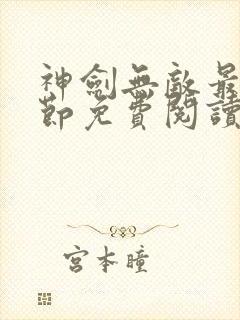 神劍無敵最
節免費閱讀
宮本瞳